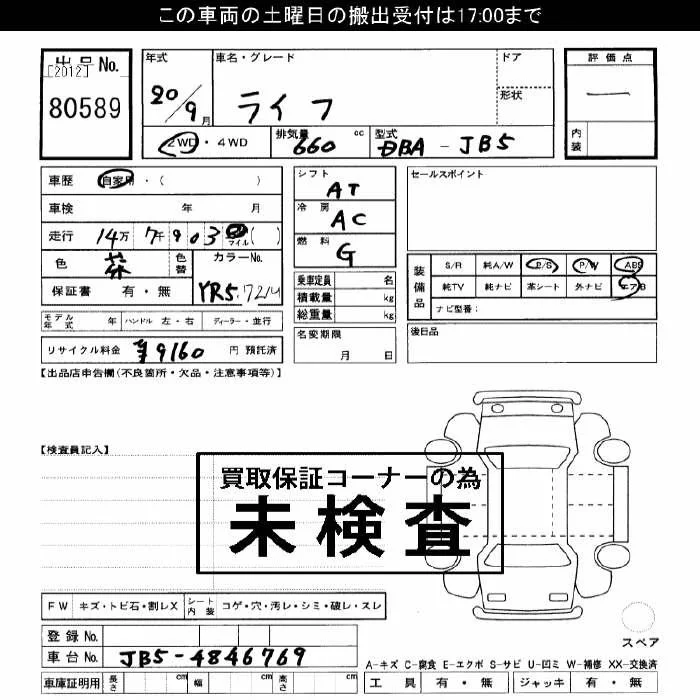 この車両の土曜日の搬出受付は17:00まで
出品 No.
[2012]
80589
年式
20/9月
車名・グレード
ライフ
ドア
形状
評価点
一
内装
2WD・4WD
排気量 660 cc
型式 DBA-JB5
車歴 自家用・( )
車検 年 月
走行 14万 7千 903 マイル ( )
色 茶
色替
カラーNo.
保証書 有・無
モデル年式 年
ハンドル 左・右
ディーラー・並行
リサイクル料金 ¥9160 円 預託済
シフト AT
冷房 AC
燃料 G
乗車定員 名
積載量 kg
総重量 kg
名変期限
月 日
セールスポイント
装備品
S/R 純A/W P/S P/W ABS
純TV 純ナビ 革シート 外ナビ エアB
ナビ型番:
後日品
【出品店申告欄(不良箇所・欠品・注意事項等)】
【検査員記入】
買取保証コーナーの為
未検査
FW キズ・トビ石・割レX
シート内装 コゲ・穴・汚レ・シミ・破レ・スレ
登録 No.
車台 No. JB5-4846769
車庫証明用 長さ cm 幅 cm 高さ cm
スペア
A-キズ C-腐食 E-エクボ S-サビ U-凹ミ W-補修 XX-交換済
工具 有・無 ジャッキ 有・無